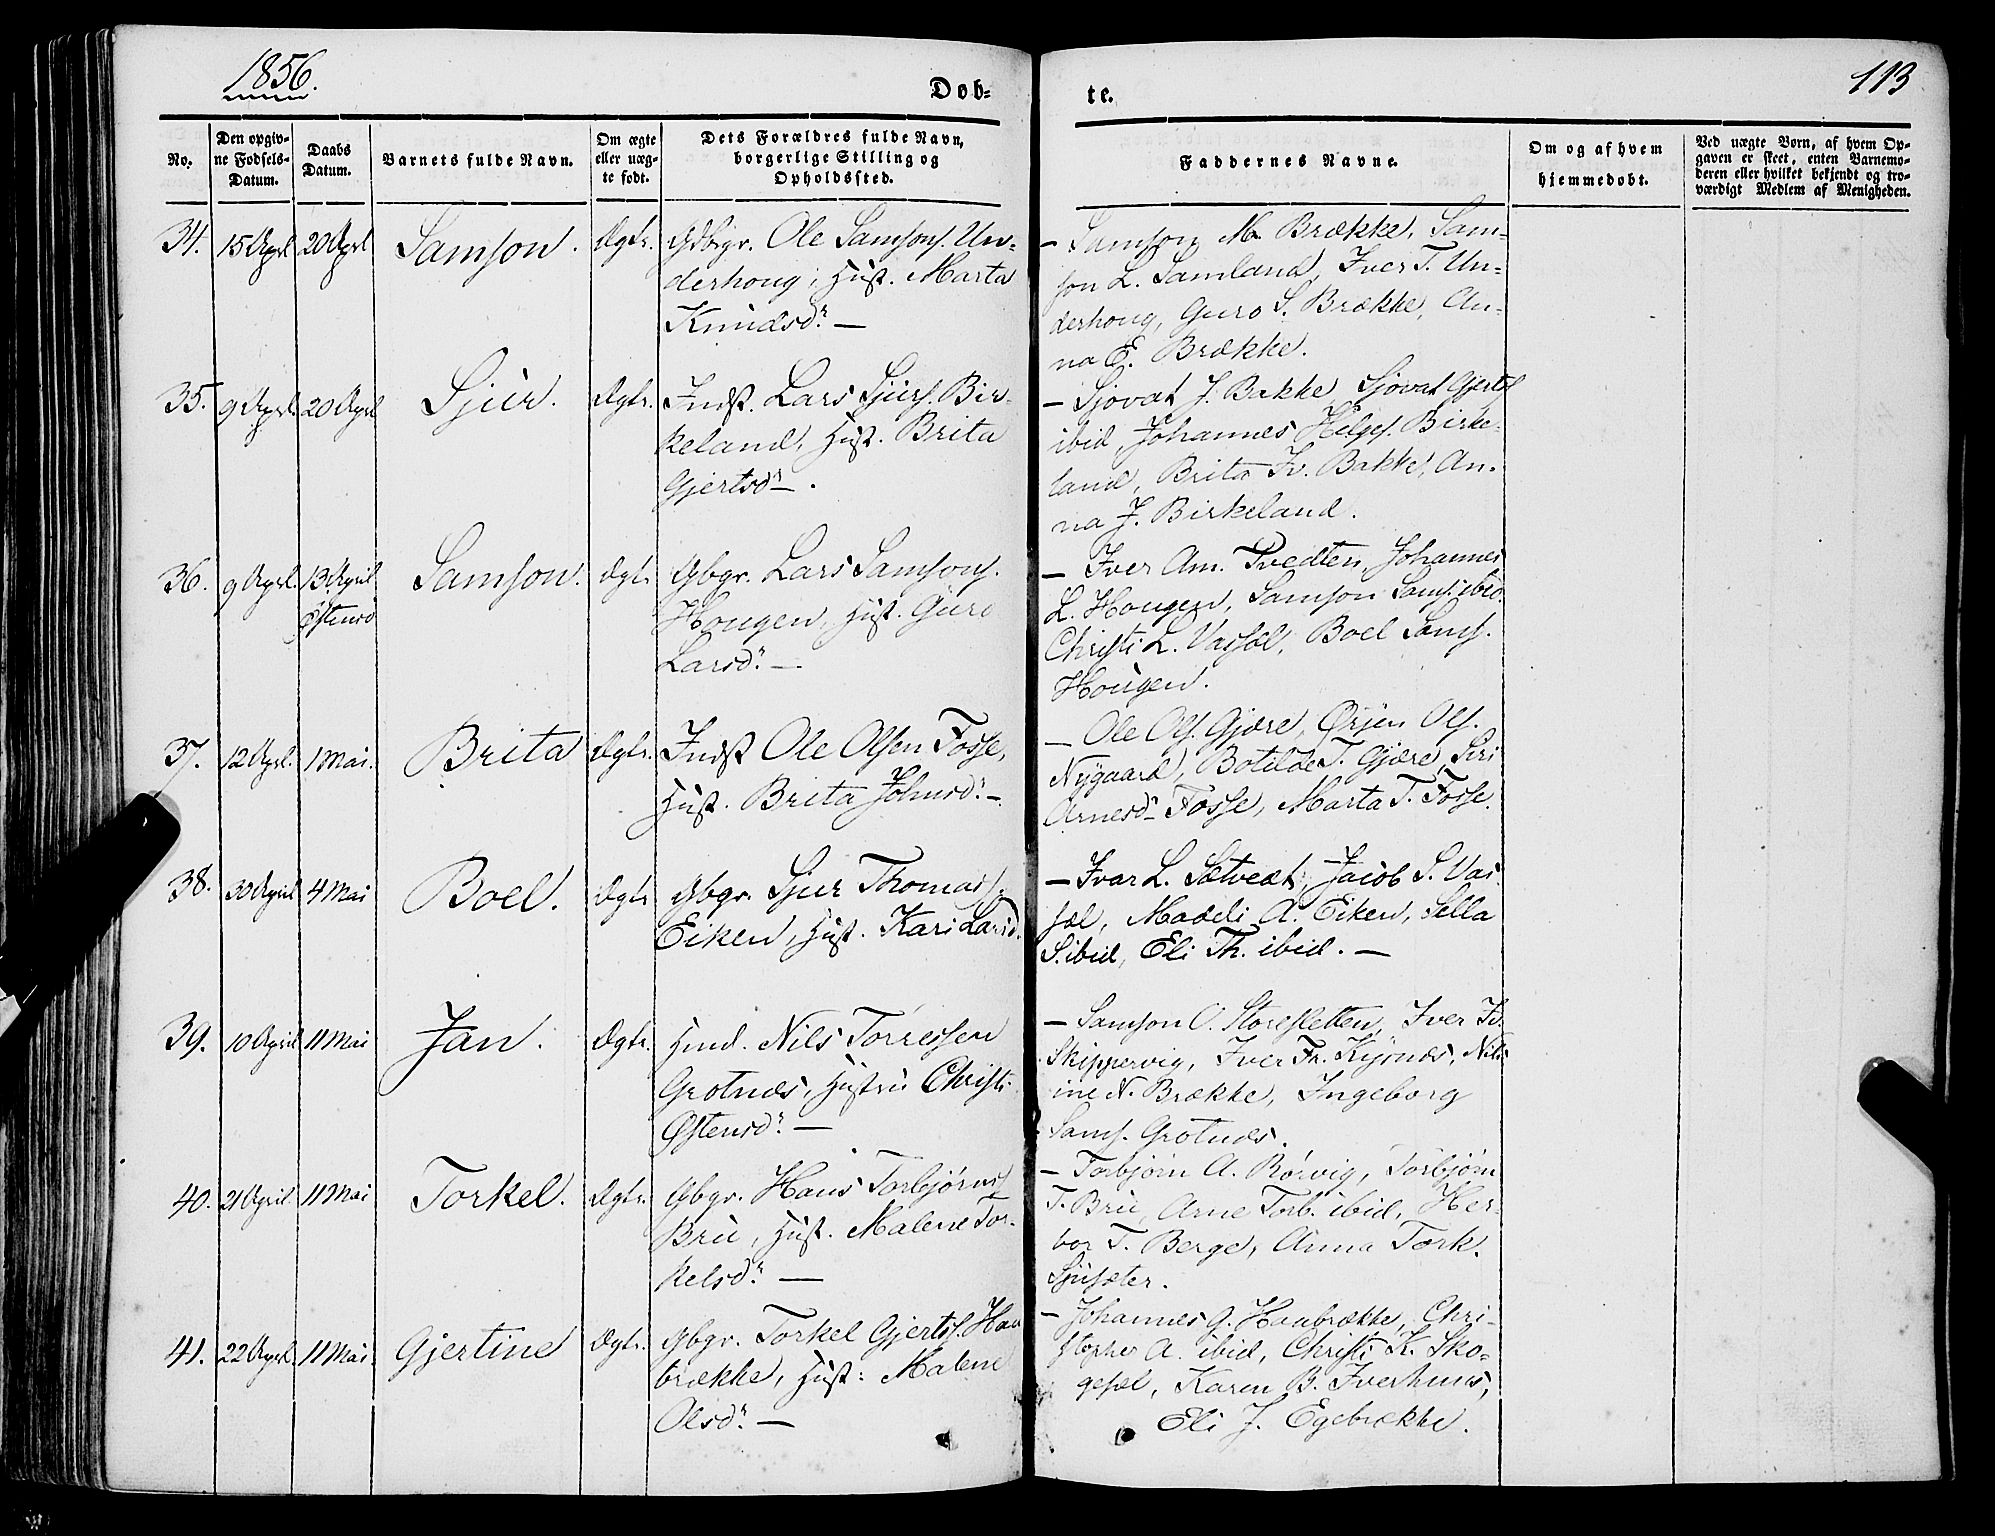 1856.
Døb-
te.
113
No.
Den opgiv-
ne Fødsels-
Datum.
Daabs
Datum.
Barnets fulde Navn.
Om ægte
eller uæg-
te født.
Dets Forældres fulde Navn,
borgerlige Stilling og
Opholdssted.
Faddernes Navne.
Om og af hvem
hjemmedøbt.
Ved uægte Børn, af hvem Op-
gaven er skeet, enten Barnemo-
deren eller hvilket bekjendt og tro-
værdigt Medlem af Menigheden.
34. 15 Aprl 20 Aprl Samson. Ægte. Gdbgr. Ole Samsons. Un-
derhoug, Hust. Marta
Knudsd. —
— Samson M. Brække, Sam-
son L. Samland, Iver T. Un-
derhoug, Guro S. Brække, An-
na E. Brække.
35. 9 Aprl. 20 Aprl Sjur. Ægte. Indst. Lars Sjurs. Bir-
keland, Hust. Brita
Gjertsd.
— Sjovat J. Bakke, Sjovat Gjerts.
ibid, Johannes Helges. Birke-
land, Brita Iv. Bakke, An-
na J. Birkeland.
36. 9 Aprl. 13 April Østensø Samson. Ægte Gbgr. Lars Samsons.
Hougen, Hust. Guro
Larsd. —
— Iver Am. Tvedten, Johannes
L. Hougen, Samson Sams. ibid.
Christi L. Vassel, Boel Sams.
Hougen.
37. 12 Aprl. 1 Mai. Brita Ægte. Indst Ole Olsen Fosse,
Hust. Brita Johnsd. —
— Ole Ols. Gjære, Ørjen Ols.
Nygaard, Botilde T. Gjære, Siri
Arnesd. Fosse, Marta T. Fosse.
38. 30 April 4 Mai Boel. Ægte Gbgr. Sjur Thomas.
Eiken, Hust. Kari Larsd.
— Ivar L. Sætvedt, Jacob S. Vas-
sel, Madeli A. Eiken, Sella
S. ibid, Eli Th. ibid. —
39. 10 April 11 Mai Jan. Ægte. Hmd. Nils Torressen
Grotnæs, Hustru Christi
Østensd. —
— Samson O. Storesletten, Iver Iv.
Skippervig, Iver Fr. Kysnæs, Nils-
ine N. Brække, Ingeborg
Sams. Grotnæs.
40. 21 April. 11 Mai Torkel. Ægte. Gbgr. Hans Torbjørns.
Bru, Hust. Malene Tor-
kelsd. —
— Torbjørn A. Rørvig, Torbjørn
T. Bru, Arne Torb. ibid, Her-
bor T. Berge, Anna Tork.
Sjusæter.
41. 22 Aprl. 11 Mai Gjertine Ægte. Gbgr. Torkel Gjerts. Haa
brække, Hust: Malene
Olsd. —
— Johannes G. Haabrække, Chri-
stopher A. ibid, Christi K. Sko-
gesel, Karen B. Iverhuus,
Eli J. Egebrække.